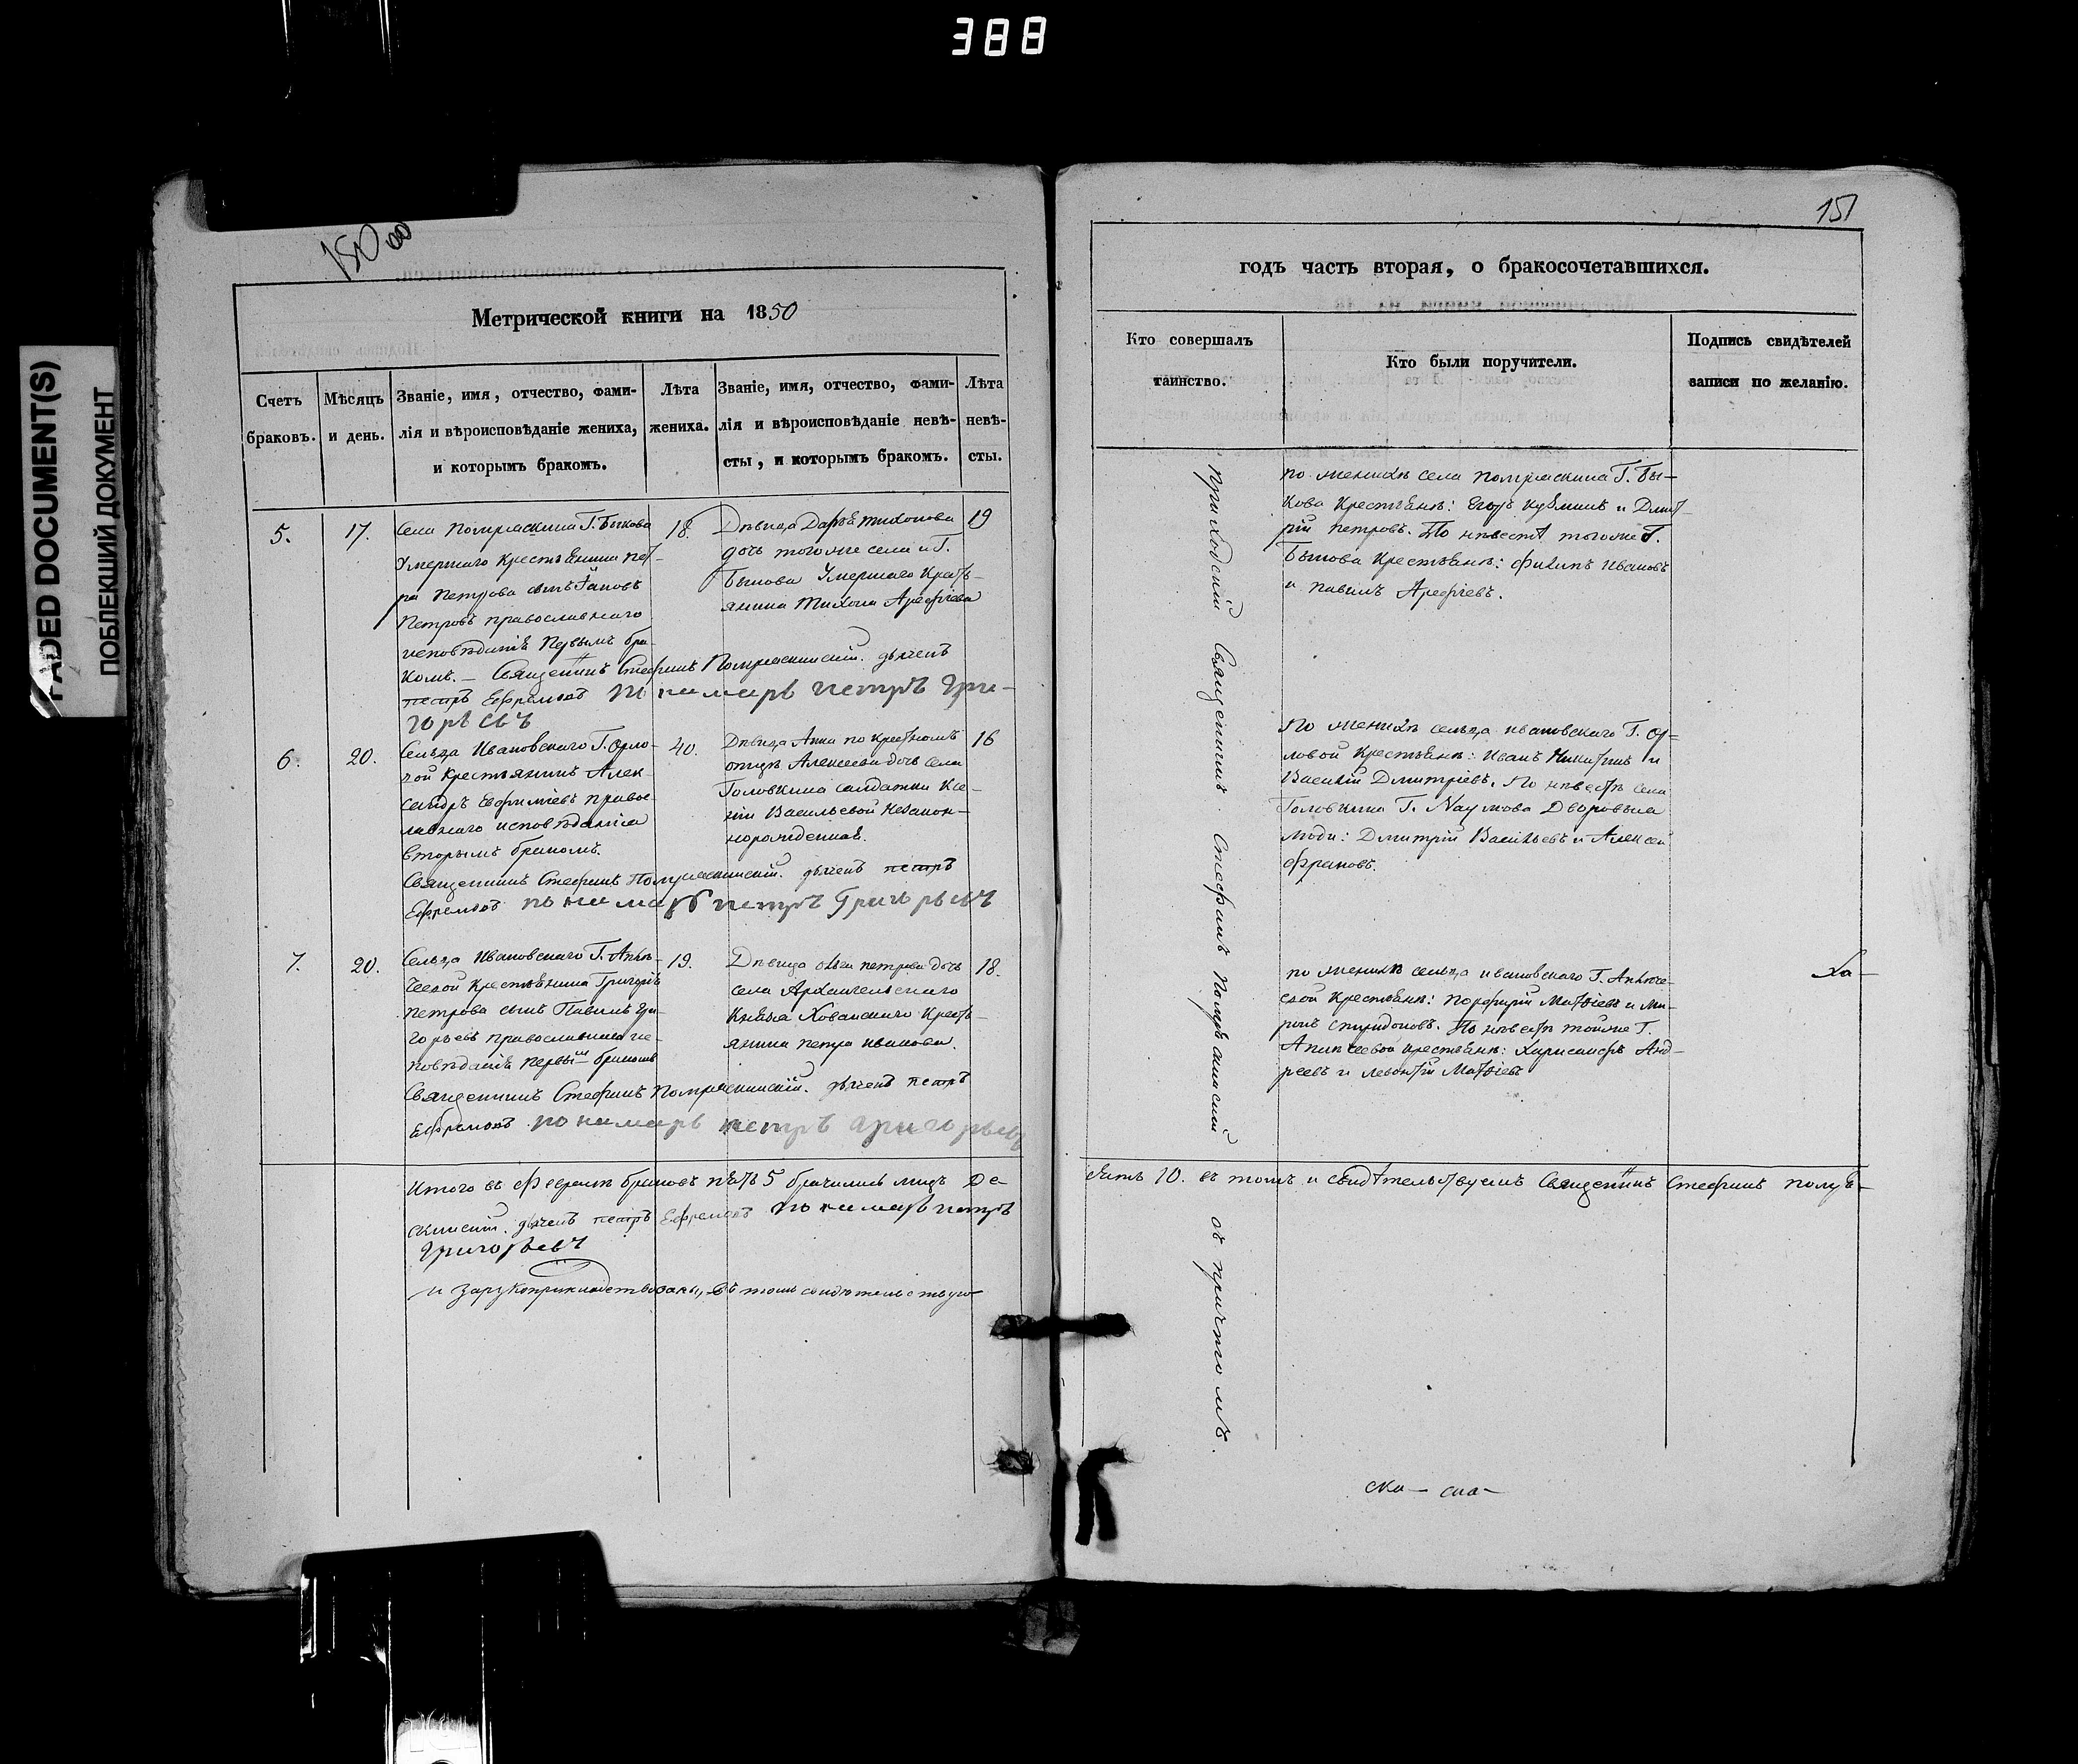 388
FADED DOCUMENT(S)
ПОБЛЕКШИЙ ДОКУМЕНТ
Метрической книги на 1850
Счетъ браковъ.
Мѣсяцъ и день.
Званіе, имя, отчество, фами-
лія и вѣроисповѣданіе жениха,
и которымъ бракомъ.
Лѣта жениха.
Званіе, имя, отчество, фами-
лія и вѣроисповѣданіе невѣ-
сты, и которымъ бракомъ.
Лѣта невѣ-
сты.
5.
17.
Села Помряскина Г. Быкова
Умершаго Крестьянина Пет-
ра Петрова сынъ
Петровъ православнаго
исповѣданія Первымъ бра-
комъ. — Священникъ Стефанъ Помряскинскій. дьячекъ
петръ Ефремовъ пономарь петръ Гри-
горьевъ
18.
Дѣвица Дарья Тихонова
дочь тогоже села и Г.
Быкова Умершаго Кресть-
янина Тихона Арефьева
19
6.
20.
Сельца Ивановскаго Г. Орло-
вой Крестьянинъ Алек-
сандръ Евфиміевъ правос-
лавнаго исповѣданія
вторымъ бракомъ.
Священникъ Стефанъ Помряскинскій. дьячекъ петръ
Ефремовъ пономарь петръ Григорьевъ
40.
Дѣвица Анна по крестному
отцу Алексеева дочь села
Головкина солдатки Ксе-
ніи Васильевой Незакон-
норожденная.
16
7.
20.
Сельца Ивановскаго Г.
Крестьянина Григорія
Петрова сынъ Павелъ Гри-
горьевъ православнаго ис-
повѣданія первымъ бракомъ
Священникъ Стефанъ Помряскинскій. дьячекъ петръ
Ефремовъ пономарь петръ григорьевъ
19.
Дѣвица Ольга петрова дочь
села Архангельскаго
Князя Хованскаго Кресть-
янина петра иванова.
18.
Итого въ Февралѣ браковъ пять 5 бračились лицъ Де-
скинскій. дьячекъ петръ Ефремовъ пономарь петръ
Григорьевъ
и зарукоприкладствованы, въ томъ свидѣтельствую
151
годъ часть вторая, о бракосочетавшихся.
Кто совершалъ
таинство.
Кто были поручители.
Подпись свидѣтелей
записи по желанію.
приходскій Священникъ Стефанъ Помряскинскій съ причтомъ.
по женихѣ села Помряскина Г. Бы-
кова Крестьяне: Егоръ Кузминъ и Дмит-
рій Петровъ. По невѣстѣ тогоже Г.
Быкова Крестьяне: Филипъ Ивановъ
и Павелъ Арефьевъ.
По женихѣ сельца ивановскаго Г. Ор-
ловой Крестьяне: Иванъ Никитинъ и
Василій Дмитріевъ. По невѣстѣ села
Головкина Г. Наумова Дворовые
люди: Дмитрій Васильевъ и Алексей
по женихѣ сельца ивановскаго Г.
Крестьяне: Порфирій Матвіевъ и Ми-
ронъ Спиридоновъ. По невѣстѣ тойже Г.
крестьяне: Хрисанфъ Анд-
реевъ и Леонтій Матвіевъ
Ха-
сять 10. въ томъ и свидѣтельствуемъ Священникъ Стефанъ помря-
ска-